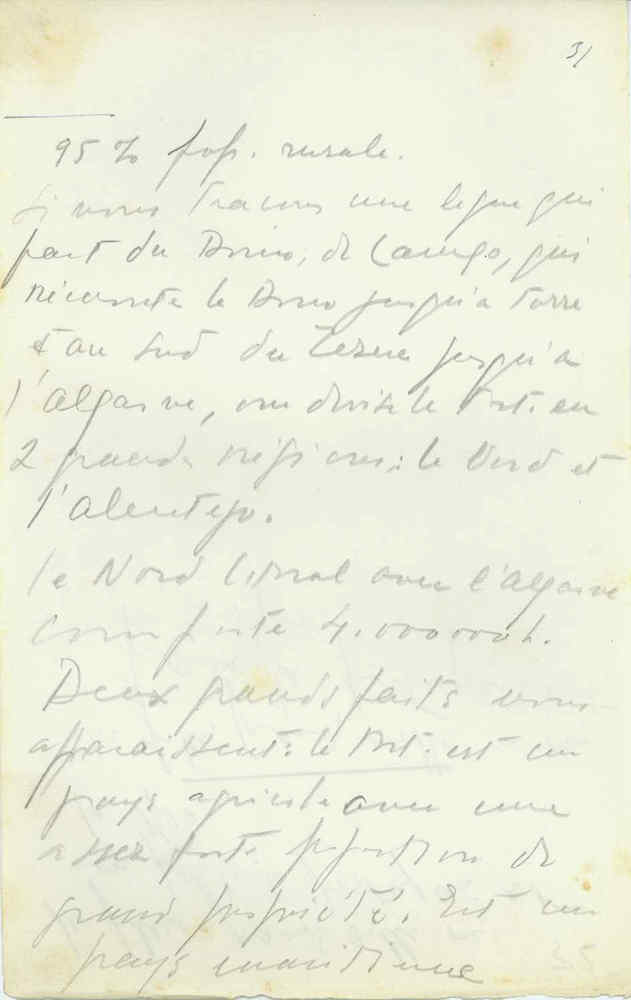 31
95 % pop. rurale.
Si nous traçons une ligne qui
part du Douro, de Lamego, qui
remonte le Douro jusqu'à Torre
et au Sud du Zezere jusqu'à
l'Algarve, on divise le Port. en
2 grandes régions: le Nord et
l'Alentejo.
le Nord littoral avec l'Algarve
comporte 4.000000 h.
Deux grands faits nous
apparaissent: le Port. est un
pays agricole avec une
assez forte proportion de
grand propriété. Est un
pays maritime